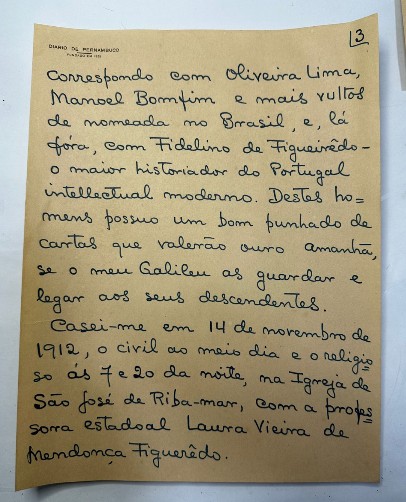 3
DIARIO DE PERNAMBUCO
correspondo com Oliveira Lima,
Manoel Bomfim e mais vultos
de nomeada no Brasil, e, lá
fóra, com Fidelino de Figueirêdo-
o maior historiador do Portugal
intellectual moderno. Destes ho=
mens possuo um bom punhado de
cartas que valerão ouro amanhã,
se o meu Galileu as guardar e
legar aos seus descendentes.
Casei-me em 14 de novembro de
1912, o civil ao meio dia e o religio=
so ás 7 e 20 da noite, na Igreja de
São José de Riba-mar, com a profes=
sora estadoal Laura Vieira de
Mendonça Figuerêdo.